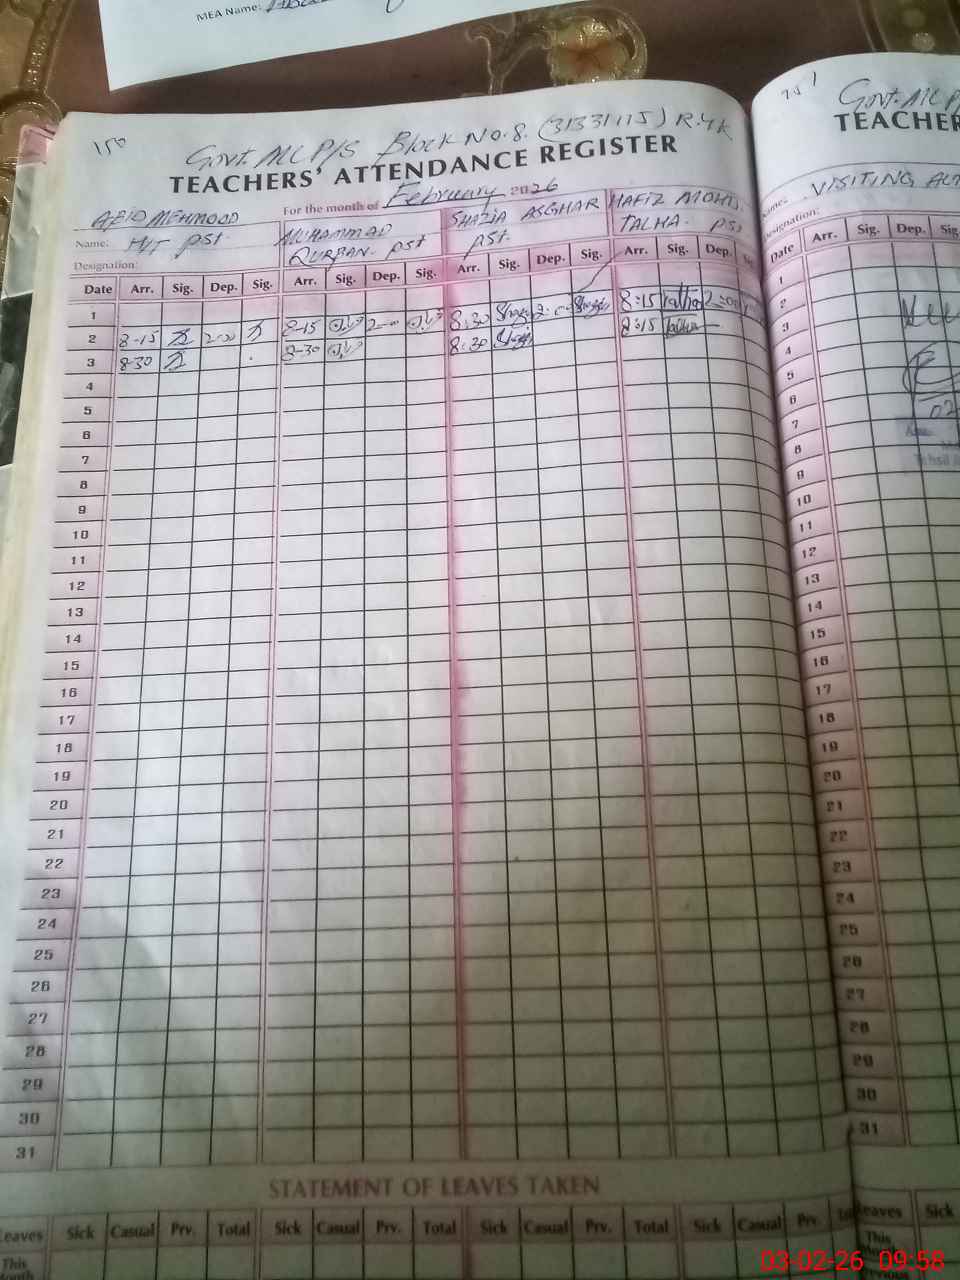 MEA Name:
150
Govt. MC P/S Block No. 8. (31331115) R.Y.K
TEACHERS' ATTENDANCE REGISTER
For the month of February 2026
Name: ABID MEHMOOD MUHAMMAD QURBAN. PST SHAZIA ASGHAR PST. HAFIZ MOHD. TALHA. PST
Designation: H/T PST.
Date Arr. Sig. Dep. Sig. Arr. Sig. Dep. Sig. Arr. Sig. Dep. Sig. Arr. Sig. Dep.
1
2 8-15 2-00 8-15 2-00 8:30 8:15 Talha 2:00
3 8-30 8-30 8:30 8:15 Talha
4
5
6
7
8
9
10
11
12
13
14
15
16
17
18
19
20
21
22
23
24
25
26
27
28
29
30
31
STATEMENT OF LEAVES TAKEN
Leaves Sick Casual Prv. Total Sick Casual Prv. Total Sick Casual Prv. Total Sick Casual Prv.
This
Month
151
Govt. MC P/
TEACHER
Name: VISITING
Designation:
Date Arr. Sig. Dep.
1
2
3
4
5
6
7
8
9
10
11
12
13
14
15
16
17
18
19
20
21
22
23
24
25
26
27
28
29
30
31
Leaves Sick
This
03-02-26 09:58